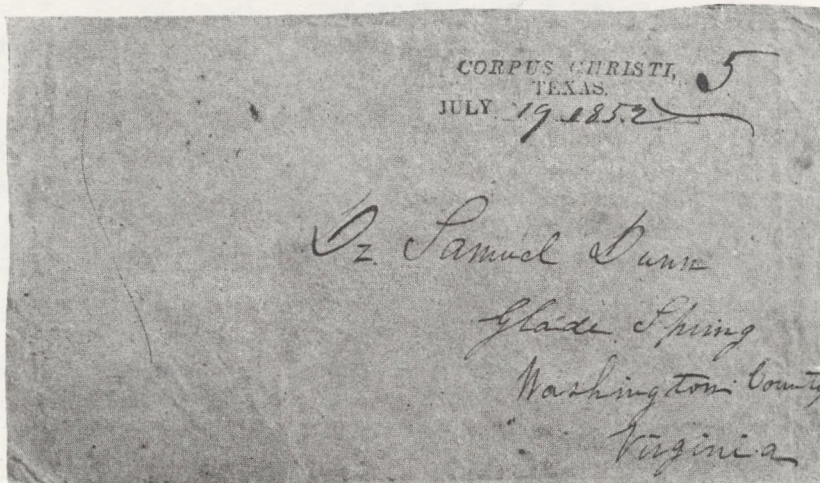 CORPUS CHRISTI, 5
TEXAS.
JULY 19 1852
Dr. Samuel Dunn
Glade Spring
Washington County
Virginia